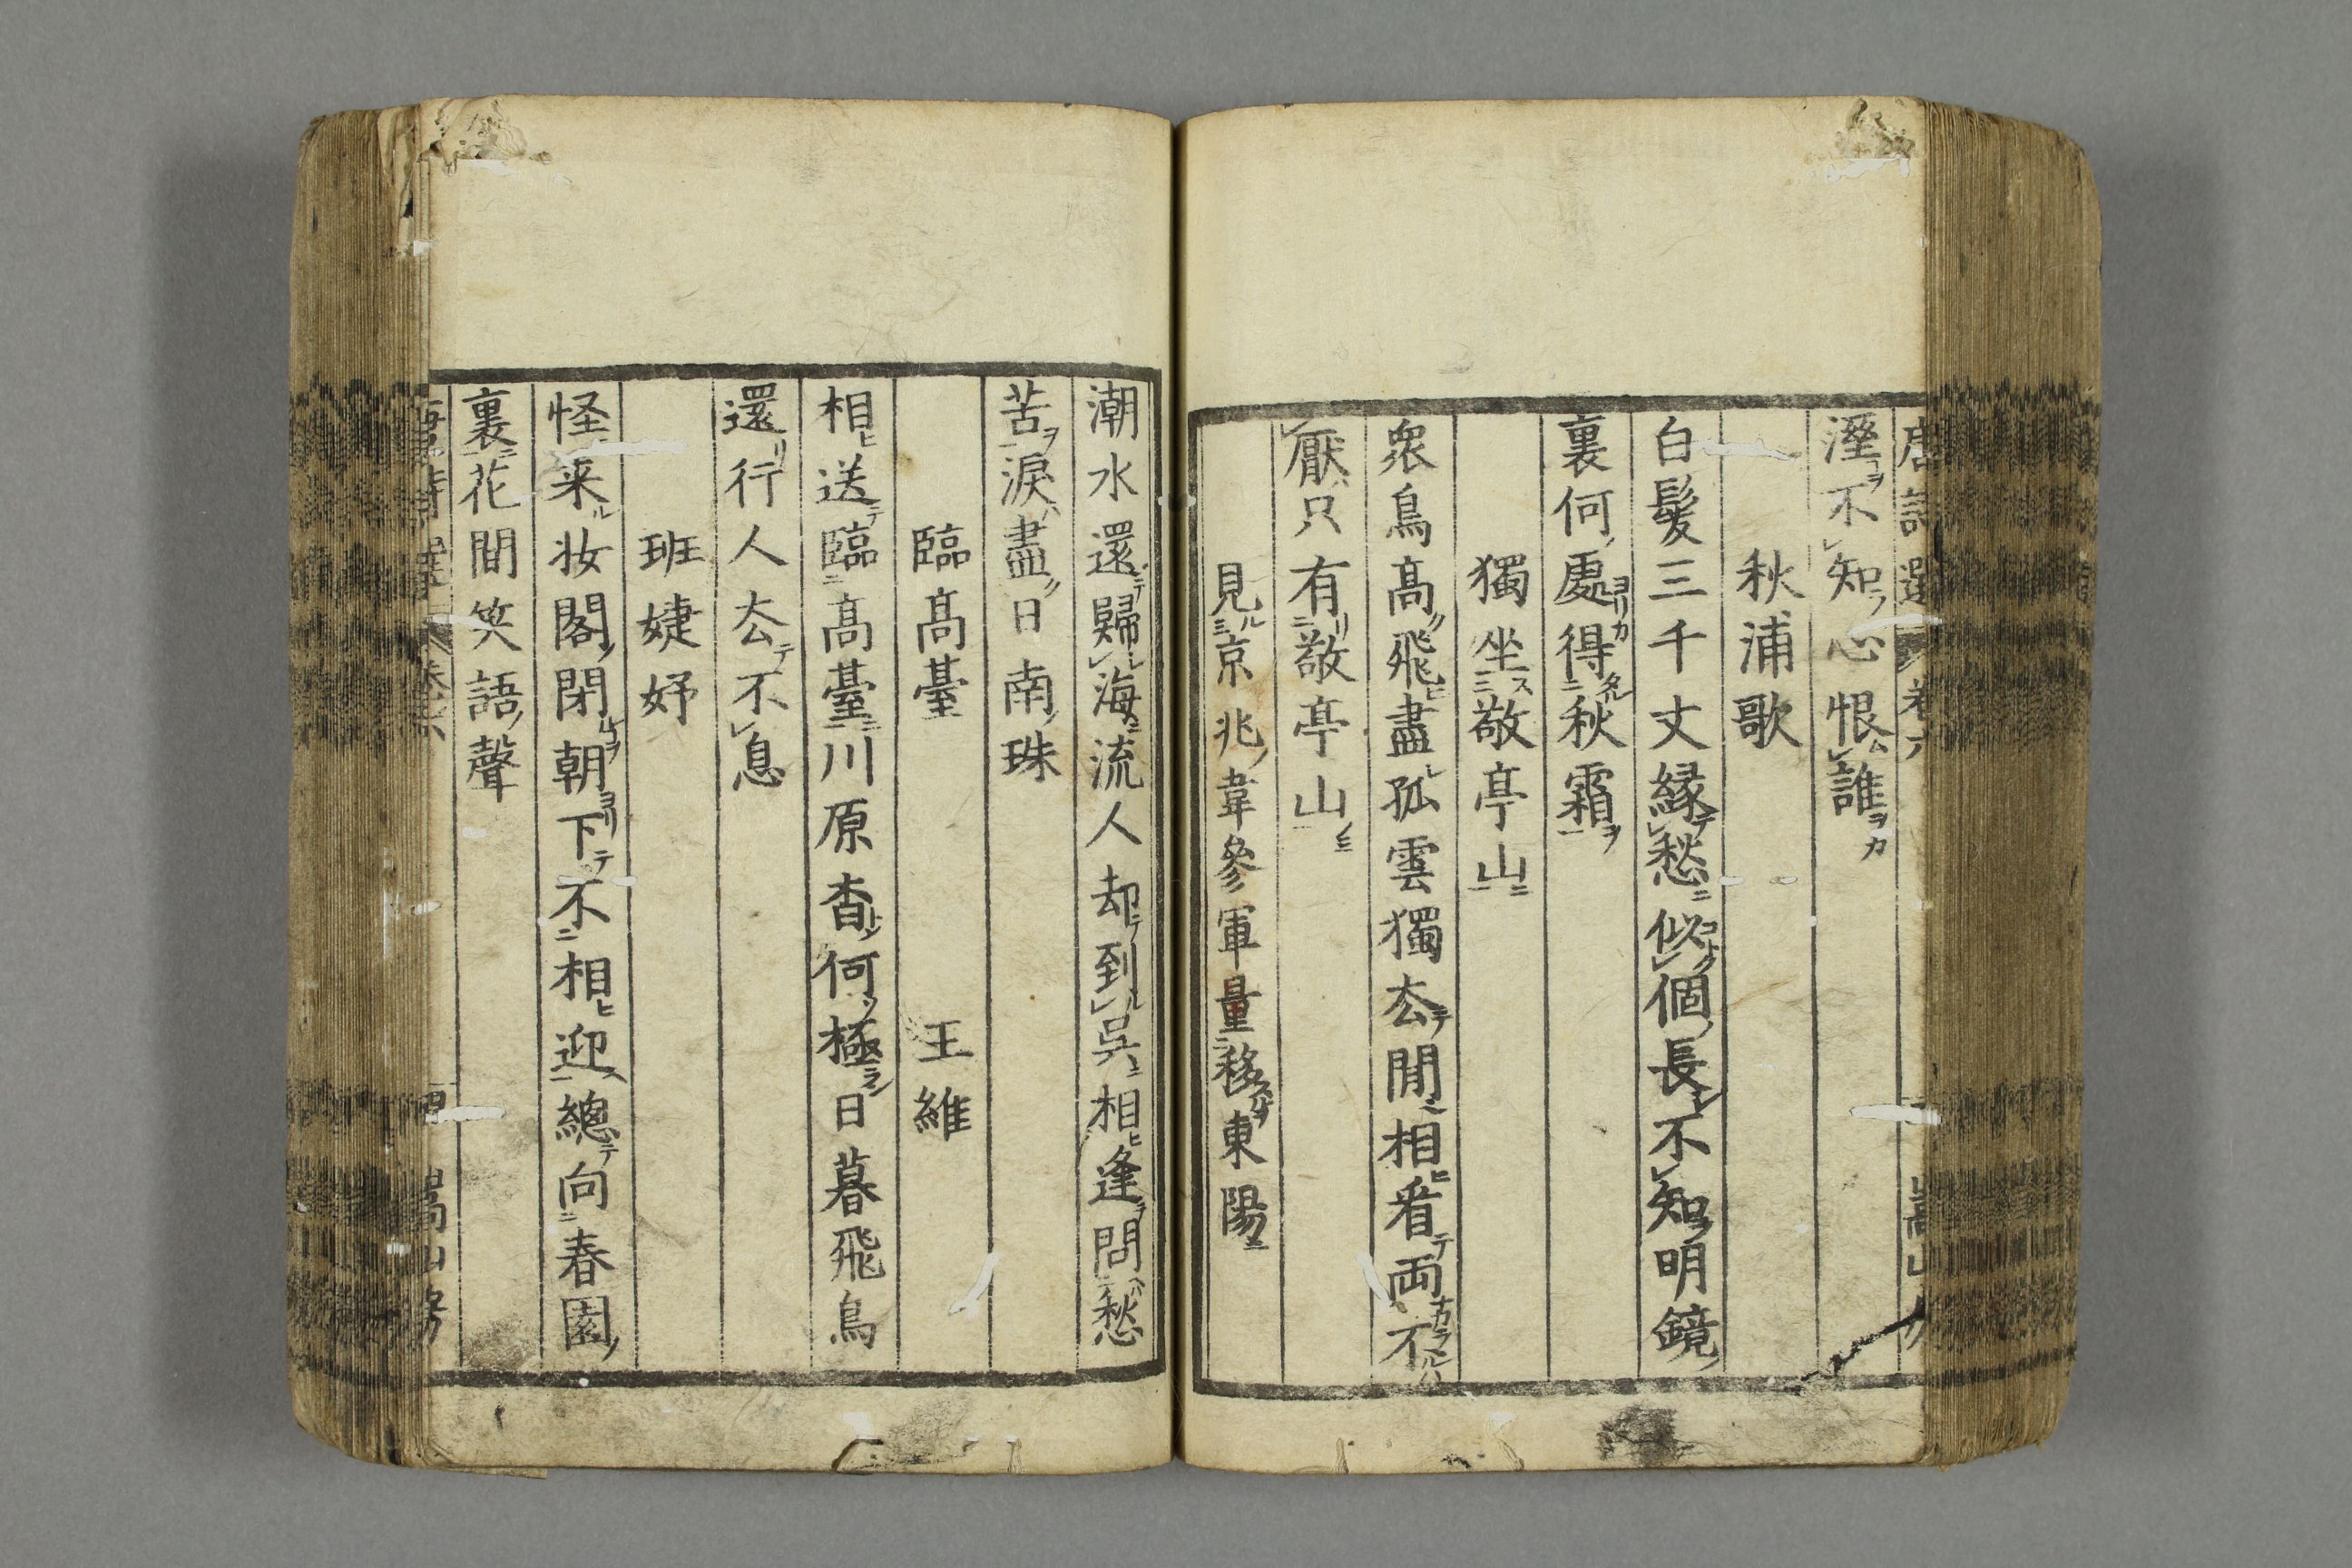 溼不知心恨誰
秋浦歌
白髮三千丈緣愁似個長不知明鏡
裏何處得秋霜
獨坐敬亭山
衆鳥高飛盡孤雲獨厺閒相看両不
厭只有敬亭山
見京兆韋參軍量移東陽
潮水還歸海流人却到吳相逢問愁
苦淚盡日南珠
臨高臺 王維
相送臨高臺川原杳何極日暮飛鳥
還行人厺不息
班婕妤
怪来妝閣閉朝下不相迎總向春園
裏花間笑語聲